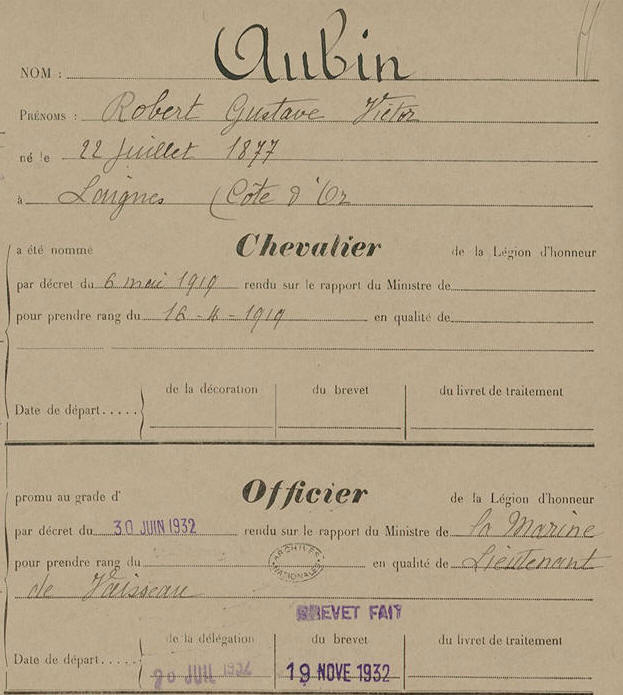 NOM : Aubin
PRÉNOMS : Robert Gustave Victor
né le 22 Juillet 1877
à Laignes (Côte d'Or
a été nommé Chevalier de la Légion d'honneur
par décret du 6 mai 1919 rendu sur le rapport du Ministre de
pour prendre rang du 16-4-1919 en qualité de
de la décoration du brevet du livret de traitement
Date de départ.....
promu au grade d' Officier de la Légion d'honneur
par décret du 30 JUIN 1932 rendu sur le rapport du Ministre de la Marine
pour prendre rang du ARCHIVES NATIONALES en qualité de Lieutenant
de Vaisseau
BREVET FAIT
de la délégation du brevet du livret de traitement
Date de départ..... 20 JUIL 1932 19 NOVE 1932